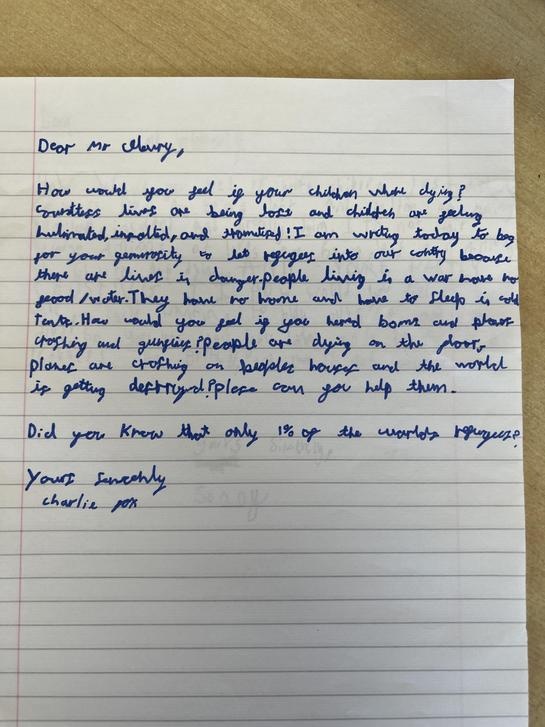 Dear Mr
How would you feel if your children where dying?
Countless lives are being lose and children are feeling
humiliated, insolted, and tromtised! I am writing today to beg
for your generosity to let refugees into our contry because
there are lives in danger. People living in a war have no
food / water. They have no home and have to sleep in cold
Tents. How would you feel if you hered boms and planes
croshing and gunfires? People are dying on the floor,
planes are croshing on peoples houses and the world
is getting destroyd! Please can you help them.
Did you know that only 1% of the worlds refugees?
Yours sincerely
charlie fox